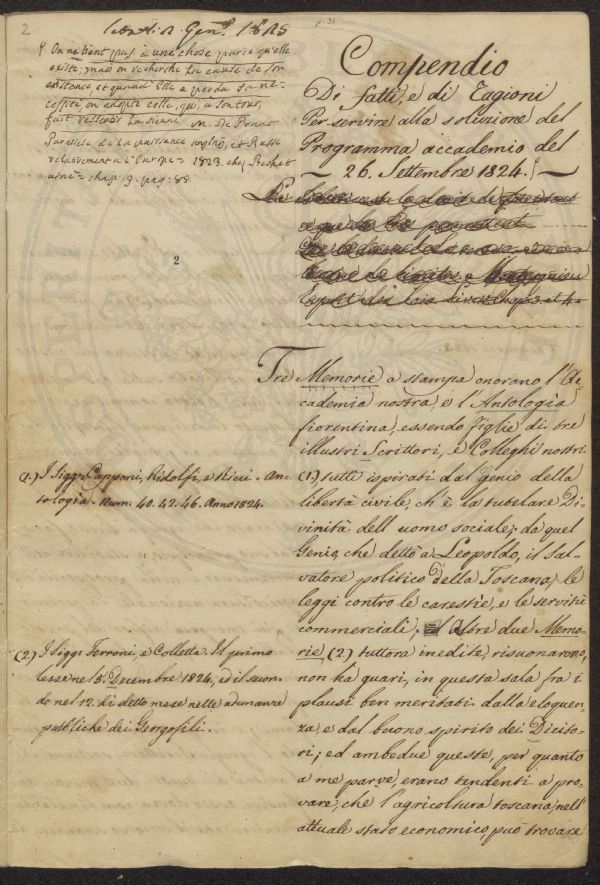 2
p. 35
Gen. 1825
On ne tient pas à une chose parce qu'elle
existe; mais on recherche la cause de son
existence, et quand elle a perdu sa né-
cessité, on adopte celle, qui, à son tour,
fait ressentir la sienne. M. de Pradt
Parallele de la puissance anglaise, et Russe
relativement à l'Europe = 1823. chez Bechet
ainé = chap. 9. pag. 88.
2
Compendio
Di fatti, e di Ragioni
Per servire alla soluzione del
Programma accademico del
26. Settembre 1824.
Esprit des Lois
Tre Memorie a stampa onorano l'Ac-
cademia nostra, e l'Antologia
fiorentina, essendo Figlie di tre
illustri Scrittori, e Colleghi nostri
(1.) tutti ispirati dal genio della
libertà civile, ch'è la tutelare Di-
vinità dell'uomo sociale; da quel
Genio, che dettò a Leopoldo, il Sal-
vatore politico della Toscana, le
leggi contro le carestie, e le servitù
commerciali. altre due Memo-
rie (2.) tuttora inedite, risuonarono,
non ha guari, in questa sala fra i
plausi ben meritati dalla eloquen-
za, e dal buono spirito dei Dicito-
ri; ed ambedue queste, per quanto
a me parve, erano tendenti a pro-
vare, che l'agricoltura toscana, nell'
attuale stato economico, può trovare
(1.) I Sigg. Capponi, Ridolfi, e Ricci. An-
tologia. Num. 40. 42. 46. Anno 1824.
(2.) I Sigg. Ferroni, e Colletta. Il primo
lesse nel 5. Decembre 1824, ed il secon-
do nel 12. di detto mese nelle adunanze
pubbliche dei Georgofili.